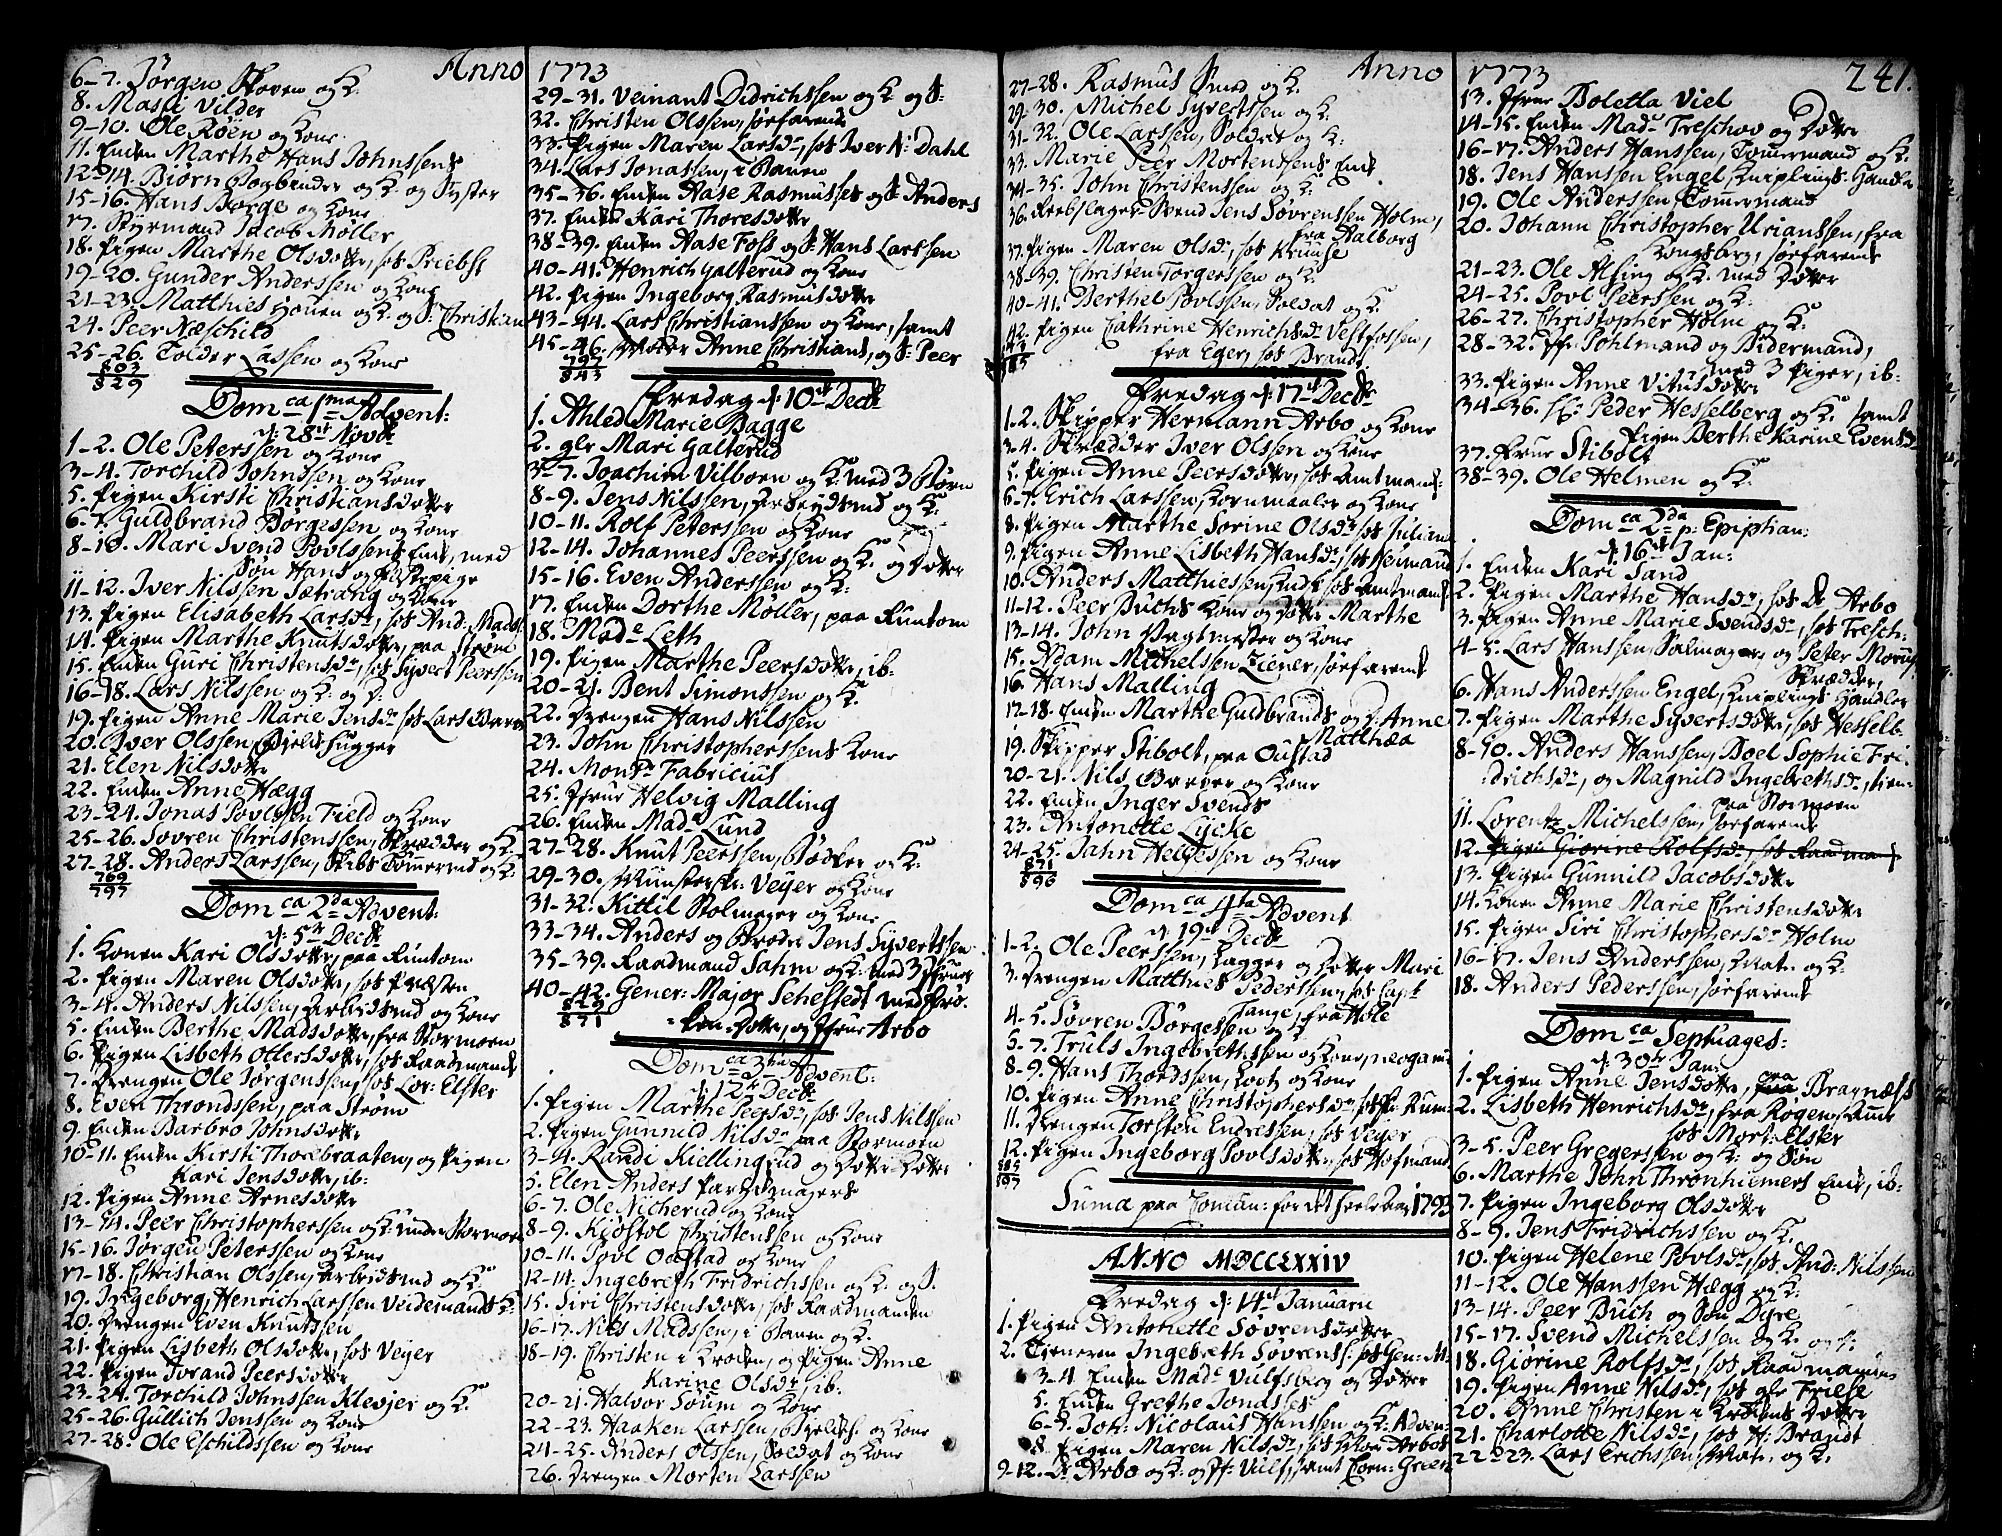 Anno 1773
6-7. Jørgen Skoven og K:
8. Mari Vilder
9-10. Ole Röen og Kone
11. Enken Marthe Hans Johnssens
12-14. Biørn Bogbinder og K: og Syster
15-16. Hans Borge og Kone
17. Styrmand Jacob Møller
18. Pigen Marthe Olsdotter, hos Priebst
19-20. Gunder Anderssen og Kone
21-23. Matthies Houen og K: og S: Christian
24. Peer Næschild
25-26. Tolder Lassen og Kone
803
829
Dom ca 1ma Advent:
d: 28de Novbr
1-2. Ole Peterssen og Kone
3-4. Torchild Johnssen og Kone
5. Pigen Kirsti Christiansdotter
6-7. Guldbrand Börgessen og Kone
8-10. Mari Svend Povlssens Enke, med
Søn Hans og
11-12. Iver Nilssen Sætrang og Kone
13. Pigen Elisabeth Larsdr, hos And: Mads:
14. Pigen Marthe Knutsdotter, paa Strøm
15. Enken Guri Christensdr, hos Syvert Peerssen
16-18. Lars Nilssen og K: og S:
19. Pigen Anne Marie Jensdr hos Lars
20. Iver Olssen,
21. Elen Nilsdotter
22. Enken Anne Hægg
23-24. Jonas Povlssen Field og Kone
25-26. Søvren Christenssen, Skrædder og K:
27-28. Anders Larssen, Skibs Tömermd og K:
769
797
Dom ca 2da Advent:
d: 5te Decbr
1. Konen Kari Olsdotter, paa Runtom
2. Pigen Maren Olsdotter, hos Præsten
3-4. Anders Nilssen, Arbeidsmd og Kone
5. Enken Berthe Madsdotter, fra Stormoen
6. Pigen Lisbeth Ottersdotter, hos Raadmands
7. Drengen Ole Jørgenssen, hos Lor: Elster
8. Even Throndssen, paa Strøm
9. Enken Barbro Johnsdotter
10-11. Enken Kirsti Thorebraaten, og Pigen
Kari Jensdotter, ib:
12. Pigen Anne Arnesdotter
13-14. Peer Christopherssen og K: under Stormoen
15-16. Jørgen Peterssen og Kone
17-18. Christian Olssen, Arbeidsmd og K:
19. Ingeborg Henrich Larssen Veidemands K:
20. Drengen Even Knutssen
21. Pigen Lisbeth Olsdotter, hos Veyer
22. Pigen Jorand Peersdotter
23-24. Torchild Johnssen Klesjer og K:
25-26. Gullich Jenssen og Kone
27-28. Ole Eschildssen og Kone
29-31. Veinant Didrichssen og K: og S:
32. Christen Olssen, søefarende
33. Pigen Maren Larsdr, hos Iver N: Dahl
34. Lars Jonassen, i Banen
35-36. Enken Aase Rasmusses og S: Anders
37. Enken Kari Thoresdotter
38-39. Enken Aase Foss og S: Hans Larssen
40-41. Henrich Galterud og Kone
42. Pigen Ingeborg Rasmusdotter
43-44. Lars Christianssen og Kone, samt
45-46. Moder Anne Christians, og S: Peer
797
843
Fredag d: 10de Decbr
1. Ahled Marie Bagge
2. glr Mari Galterud
3-7. Joachim Vilboen og K: med 3 Børn
8-9. Jens Nilssen, Arbeydsmd og K:
10-11. Rolf Peterssen og Kone
12-14. Johannes Peerssen og K: og Dotter
15-16. Even Anderssen og K:
17. Enken Dorthe Möller, paa Runtom
18. Made Leth
19. Pigen Marthe Peersdotter, ib:
20-21. Bent Simonssen og K:
22. Drengen Hans Nilssen
23. John Christopherssens Kone
24. Monsr Fabricius
25. Jfrue Helvig Malling
26. Enken Mad: Lund
27-28. Knut Peerssen, Bödker og K:
29-30. Mynsterskr: Veyer og Kone
31-32. Kittil Stolmager og Kone
33-34. Anders og Brodr Jens Syvertssen
35-39. Raadmand Sahm og K: med 3 Jfruer
40-42. Gener: Major Sehestedt med Frø:
829
871
ken Dotter, og Jfrue Arbo
Dom ca 3tia Advent:
d: 12te Decbr
1. Pigen Marthe Peersdr, hos Jens Nilssen
2. Pigen Gunnild Nilsdr paa Stormoen
3-4. Randi Kiellingrud og Dotter Dotter
5. Elen Anders Parykmagers
6-7. Ole Nicherud og Kone
8-9. Kiöstol Christenssen og Kone
10-11. Povl Oustad og Kone
12-14. Ingebreth Fridrichssen og K: og S.
15. Siri Christensdotter, hos Raadmanden
16-17. Nils Madssen, i Banen og K.
18-19. Christen i Kroken, og Pigen Anne
Karine Olsdr, ib:
20-21. Halvor Soum og Kone
22-23. Haaken Larssen, og Kone
24-25. Anders Olssen, Soldat og Kone
26. Drengen Morten Larssen
Anno 1773 241.
27-28. Rasmus Smed og K.
29-30. Michel Syvertssen og K:
31-32. Ole Larssen, Soldat og K:
33. Marie Peer Mortenssens Enke
34-35. John Christenssen og K:
36. Reebslager-Svend Jens Søvrenssen Holm,
fra Aalborg
37. Pigen Maren Olsdr, hos Kruuse
38-39. Christen Torgerssen og K:
40-41. Berthel Povlssen, Soldat og K:
42. Pigen Cathrine Henrichsdr Vestfossen,
fra Eger, hos Brandt
Fredag d: 17de Decbr
1-2. Skipper Hermann Arbo og Kone
3-4. Skrædder Iver Olssen og Kone
5. Pigen Anne Peersdotter, hos Amtmands:
6-7. Erich Larssen, Kornmaaler og Kone
8. Pigen Marthe Sorine Olsdr hos Julian
9. Pigen Anne Lisbeth Hansdr, hos Neimand
10. Anders Matthiessen, Kudsk hos Amtmand:
11-12. Peer Buchs Kone og Dotter Marthe
13-14. John Vagtmester og Kone
15. Adam Michelssen Ziener, søefarende
16. Hans Malling
17-18. Enken Marthe Guldbrands og D. Anne
Matthæa
19. Skipper Stibolt, paa Oustad
20-21. Nils og Kone
22. Enken Inger Svends
23. Antonette Lycke
24-25. Jahn Helgessen og Kone
871
896
Dom ca 4ta Advent
d: 19de Decbr
1-2. Ole Peerssen, Sagger og Dotter Mari
3. Drengen Matthies Pederssen, hos Capt
Tange, fra Hole
4-5. Søvren Börgessen og K
5-7. Truls Ingebrethssen og Kone, neogami
8-9. Hans Thordssen, Lods og Kone
10. Pigen Anne Christophersdr, hos Rum:
11. Drengen Torsten Endressen, hos Veyer
12. Pigen Ingeborg Povlsdotter, hos Hofmand
Suma paa Comun: for det heele Aar 1793
ANNO MDCCLXXIV
Fredag d: 14de Januarii
1. Pigen Antonette Søvrensdotter
2. Tieneren Ingebreth Søvrens: hos Gen: M:
3-4. Enken Made Vulfsberg og Dotter
5. Enken Grethe Jonasses
6-7. Joh: Nicolaus Hanssen og K: Adven:
8. Pigen Maren Nilsdr, hos Arbos
9-12. Dr Arbo og K: og Jfr Vulf, samt Corn: Green
13. Jfrue Boletta Viel
14-15. Enken Made Treschov og Dotter
16-17. Anders Hanssen, Tømermand og K.
18. Jens Hanssen Engel, Kniplings-Handler
19. Ole Anderssen Tømermand
20. Johann Christopher Urianssen, fra
Kongsberg, søefarende
21-23. Ole Alfing og K. med Dotter
24-25. Povl Peerssen og K:
26-27. Christopher Holm og K:
28-32. Jfr Pohlmand og Bidermand,
med 3 Piger, ib:
33. Pigen Anne Vitusdotter
34-36. Hr: Peder Hesselberg og K: samt
Pigen Berthe Karine Evensdr
37. Frue Stibolt
38-39. Ole Helmen og K:
Dom ca 2da p: Epiphan:
d: 16de Jan:
1. Enken Kari Sand
2. Pigen Marthe Hansdr, hos Dr Arbo
3. Pigen Anne Marie Svendsdr, hos Tresch:
4-5. Lars Hanssen, Salmager, og Peter Morup
Skrædder,
6. Hans Anderssen Engel, Kniplings-Handler
7. Pigen Marthe Syvertsdotter, hos Hesselb.
8-10. Anders Hanssen, Boel Sophie Fri-
drichsdr, og Magnild Ingebrethsdr, tien:
paa Stormoen
11. Lorentz Michelssen, søefarende
12. Pigen Giørine Rolfsdr, hos Raadmand:
13. Pigen Gunnild Jacobsdotter
14. Konen Anne Marie Christensdotter
15. Pigen Siri Christophersdr Holm
16-17. Jens Anderssen, Mat: og K:
18. Anders Pederssen, søefarende
Dom ca Septuages:
d: 30te Jan:
1. Pigen Anne Jensdotter, paa Bragnæss
2. Lisbeth Henrichsdr, fra Rogen,
hos Mort: Elster
3-5. Peer Gregerssen og K: og Søn
6. Marthe John Thronhiemers Enke, ib:
7. Pigen Ingeborg Olsdotter
8-9. Jens Fridrichssen og K:
10. Pigen Helene Povlsdr, hos And: Nilssen
11-12. Ole Hanssen Hægg og K:
13-14. Peer Buch og Søn Dyre
15-17. Svend Michelssen og K: og S:
18. Giørine Rolfsdr, hos Raadmanden
19. Pigen Anne Nilsdr, hos glr Friese
20. Anne Christen i Krokens Dotter
21. Charlotte Nilsdr, hos H: Brandt
22-23. Lars Erichssen, Mat: og K.